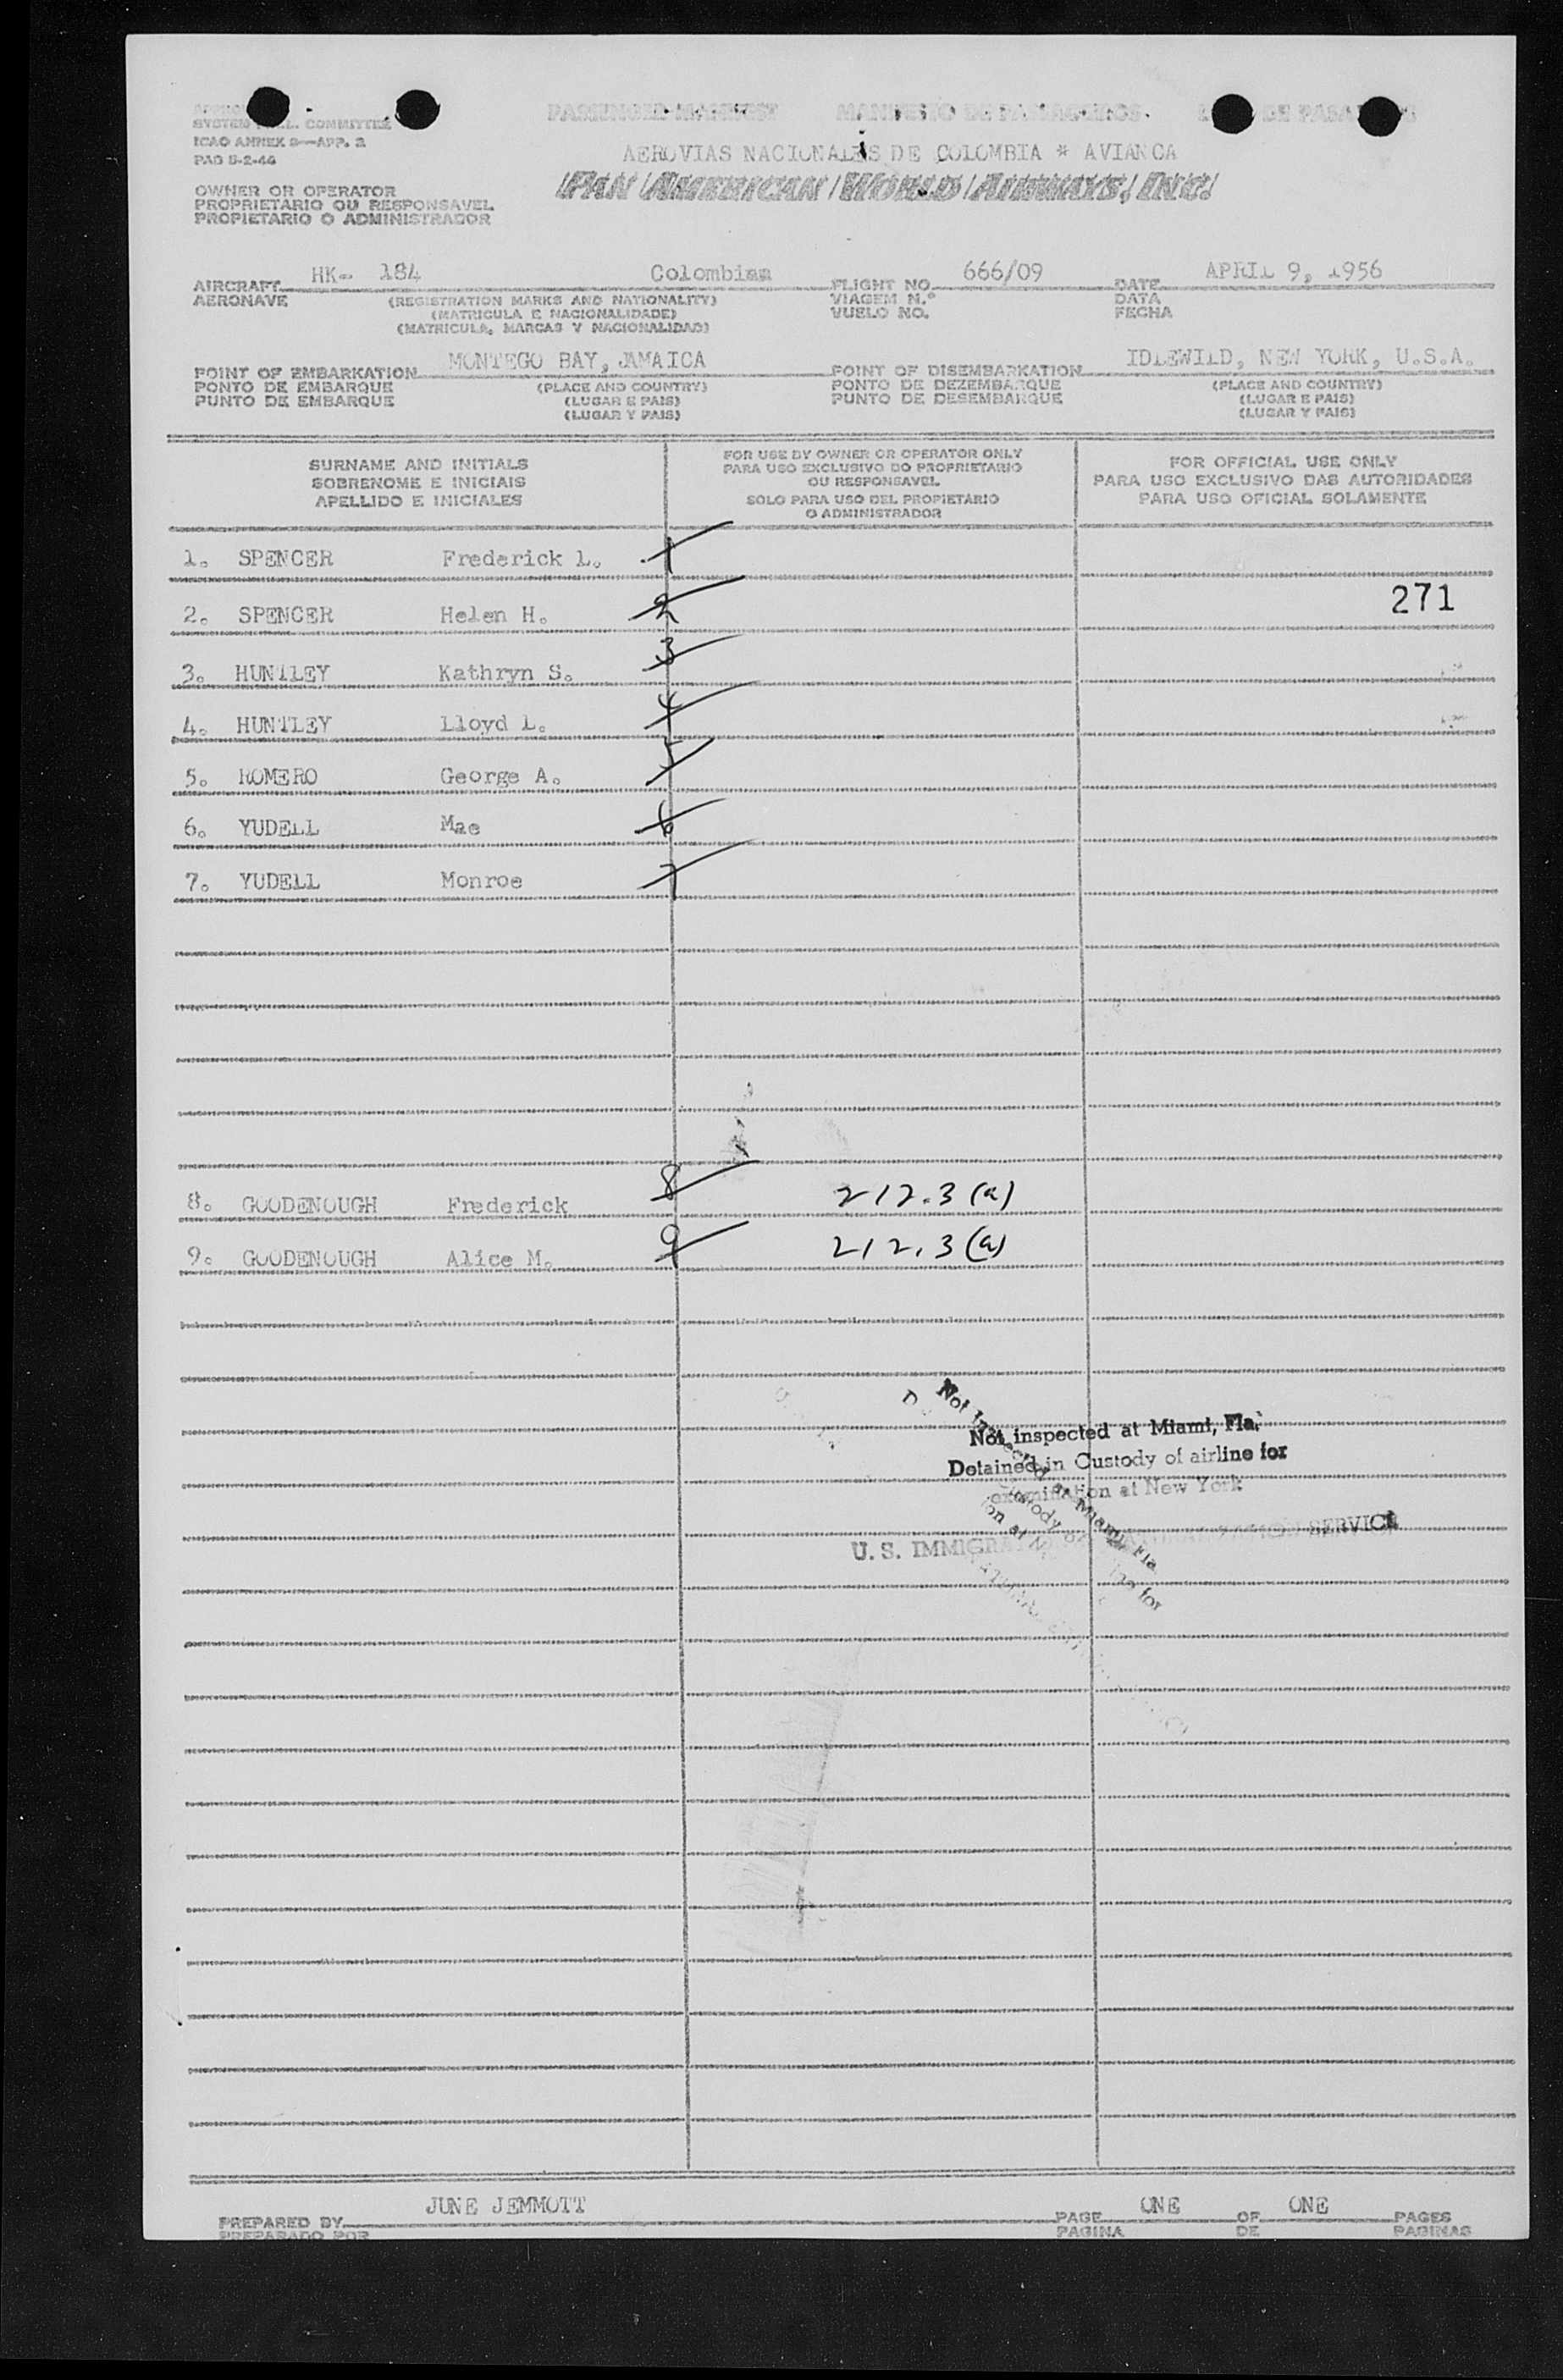 PASSENGER MANIFEST MANIFESTO DE PASSAGEIROS. DE
SYSTEM COMMITTEE
ICAO ANNEX 9—APP. 2
PAD 5-2-46
AEROVIAS NACIONALES DE COLOMBIA * AVIANCA
PAN AMERICAN WORLD AIRWAYS, INC.
OWNER OR OPERATOR
PROPRIETARIO OU RESPONSAVEL
PROPIETARIO O ADMINISTRADOR
AIRCRAFT HK- 184 Colombian FLIGHT NO. 666/09 DATE APRIL 9, 1956
AERONAVE (REGISTRATION MARKS AND NATIONALITY) VIAGEM N.° DATA
(MATRICULA E NACIONALIDADE) VUELO NO. FECHA
(MATRICULA, MARCAS Y NACIONALIDAD)
POINT OF EMBARKATION MONTEGO BAY, JAMAICA POINT OF DISEMBARKATION IDLEWILD, NEW YORK, U.S.A.
PONTO DE EMBARQUE (PLACE AND COUNTRY) PONTO DE DEZEMBARQUE (PLACE AND COUNTRY)
PUNTO DE EMBARQUE (LUGAR E PAIS) PUNTO DE DESEMBARQUE (LUGAR E PAIS)
(LUGAR Y PAIS) (LUGAR Y PAIS)
SURNAME AND INITIALS
SOBRENOME E INICIAIS
APELLIDO E INICIALES
FOR USE BY OWNER OR OPERATOR ONLY
PARA USO EXCLUSIVO DO PROPRIETARIO
OU RESPONSAVEL
SOLO PARA USO DEL PROPIETARIO
O ADMINISTRADOR
FOR OFFICIAL USE ONLY
PARA USO EXCLUSIVO DAS AUTORIDADES
PARA USO OFICIAL SOLAMENTE
1. SPENCER Frederick L. 1
2. SPENCER Helen H. 2 271
3. HUNTLEY Kathryn S. 3
4. HUNTLEY Lloyd L. 4
5. ROMERO George A. 5
6. YUDELL Mae 6
7. YUDELL Monroe 7
8. GOODENOUGH Frederick 8 212.3(a)
9. GOODENOUGH Alice M. 9 212.3(a)
Not inspected at Miami, Fla.
Detained in Custody of airline for
examination at New York
U. S. IMMIGRATION SERVICE
PREPARED BY JUNE JEMMOTT PAGE ONE OF ONE PAGES
PREPARADO POR PAGINA DE PAGINAS